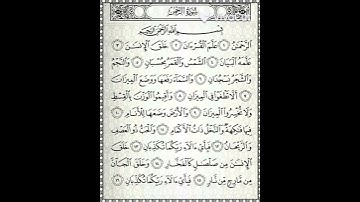 سورة الرحمن
بسم الله الرحمن الرحيم
الرَّحْمَٰنُ ۝١ عَلَّمَ الْقُرْءَانَ ۝٢ خَلَقَ الْإِنسَٰنَ ۝٣
عَلَّمَهُ الْبَيَانَ ۝٤ الشَّمْسُ وَالْقَمَرُ بِحُسْبَانٍ ۝٥ وَالنَّجْمُ
وَالشَّجَرُ يَسْجُدَانِ ۝٦ وَالسَّمَاءَ رَفَعَهَا وَوَضَعَ الْمِيزَانَ
۝٧ أَلَّا تَطْغَوْا فِي الْمِيزَانِ ۝٨ وَأَقِيمُوا الْوَزْنَ بِالْقِسْطِ
وَلَا تُخْسِرُوا الْمِيزَانَ ۝٩ وَالْأَرْضَ وَضَعَهَا لِلْأَنَامِ ۝١٠
فِيهَا فَٰكِهَةٌ وَالنَّخْلُ ذَاتُ الْأَكْمَامِ ۝١١ وَالْحَبُّ ذُو الْعَصْفِ
وَالرَّيْحَانُ ۝١٢ فَبِأَيِّ ءَالَاءِ رَبِّكُمَا تُكَذِّبَانِ ۝١٣ خَلَقَ
الْإِنسَٰنَ مِن صَلْصَٰلٍ كَالْفَخَّارِ ۝١٤ وَخَلَقَ الْجَانَّ
مِن مَّارِجٍ مِّن نَّارٍ ۝١٥ فَبِأَيِّ ءَالَاءِ رَبِّكُمَا تُكَذِّبَانِ ۝١٦